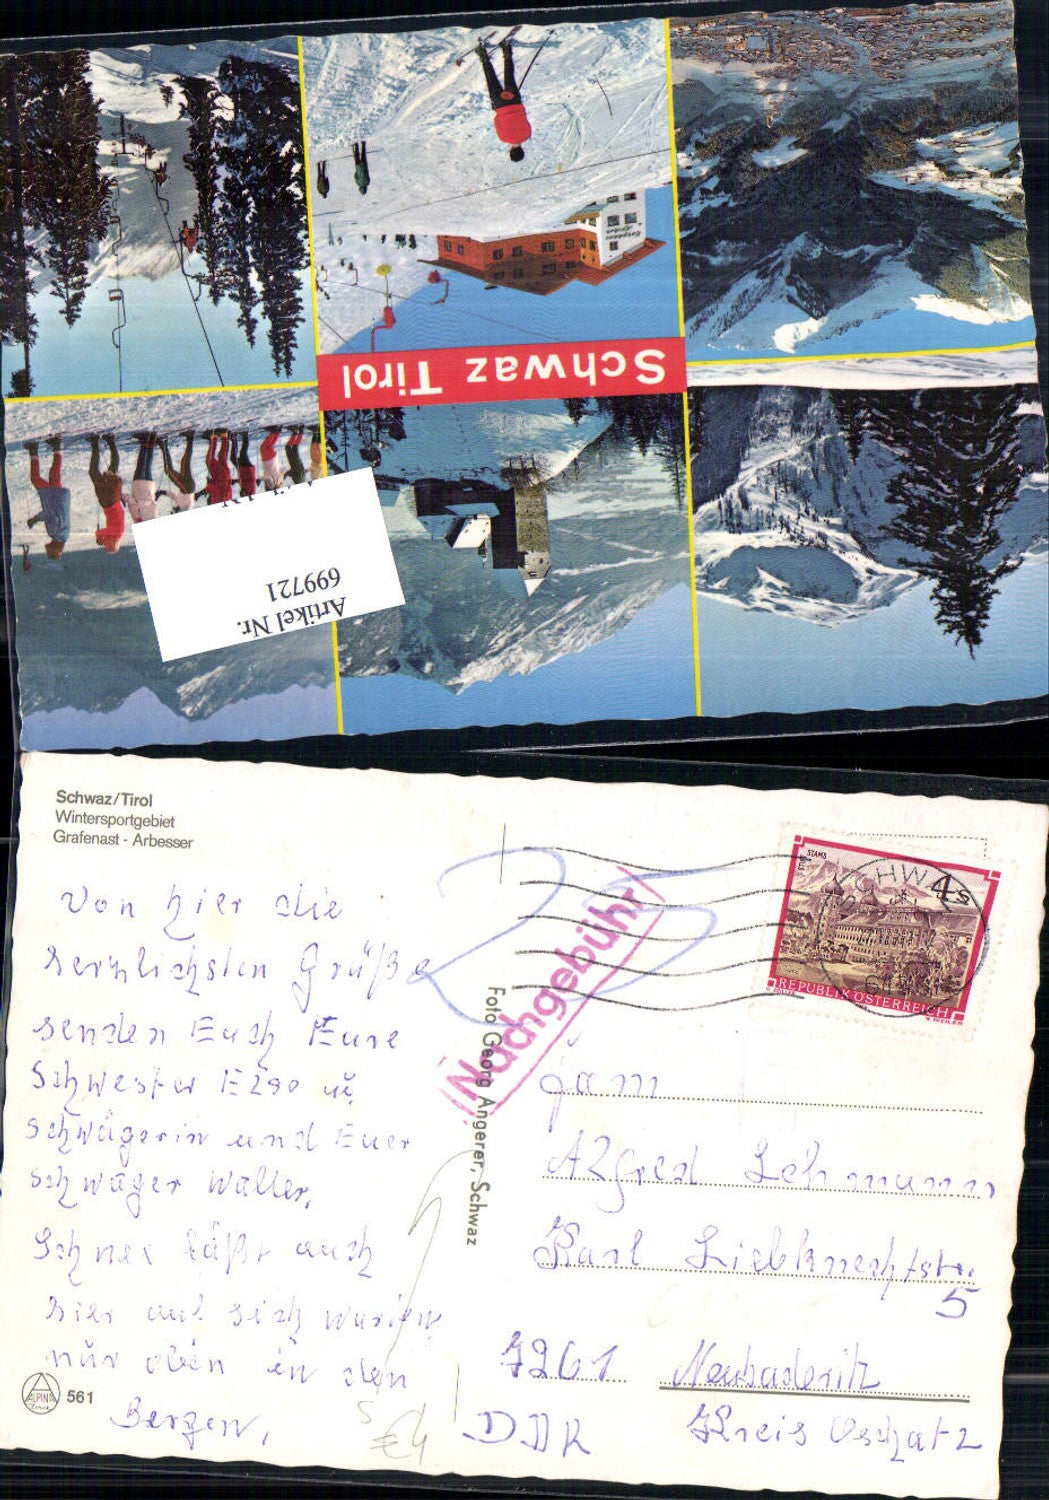 Schwaz Tirol
Berghaus
Artikel Nr.
699721
Schwaz/Tirol
Wintersportgebiet
Grafenast - Arbesser
Von hier die
herzlichsten Grüße
senden Euch Eure
Schwester Elso u.
Schwägerin und Euer
Schwager Walter,
Schnee läßt auch
hier auf sich warten
nur oben in den
Bergen,
ALPINA
561
Foto Georg Angerer, Schwaz
Nachgebühr
25
STIFT STAMS
4 S
REPUBLIK ÖSTERREICH
SCHWAZ
Fam
Alfred Lehmann
Karl Liebknechtstr.
5
7261 Neubaderitz
DDR Kreis Oschatz
€ 4